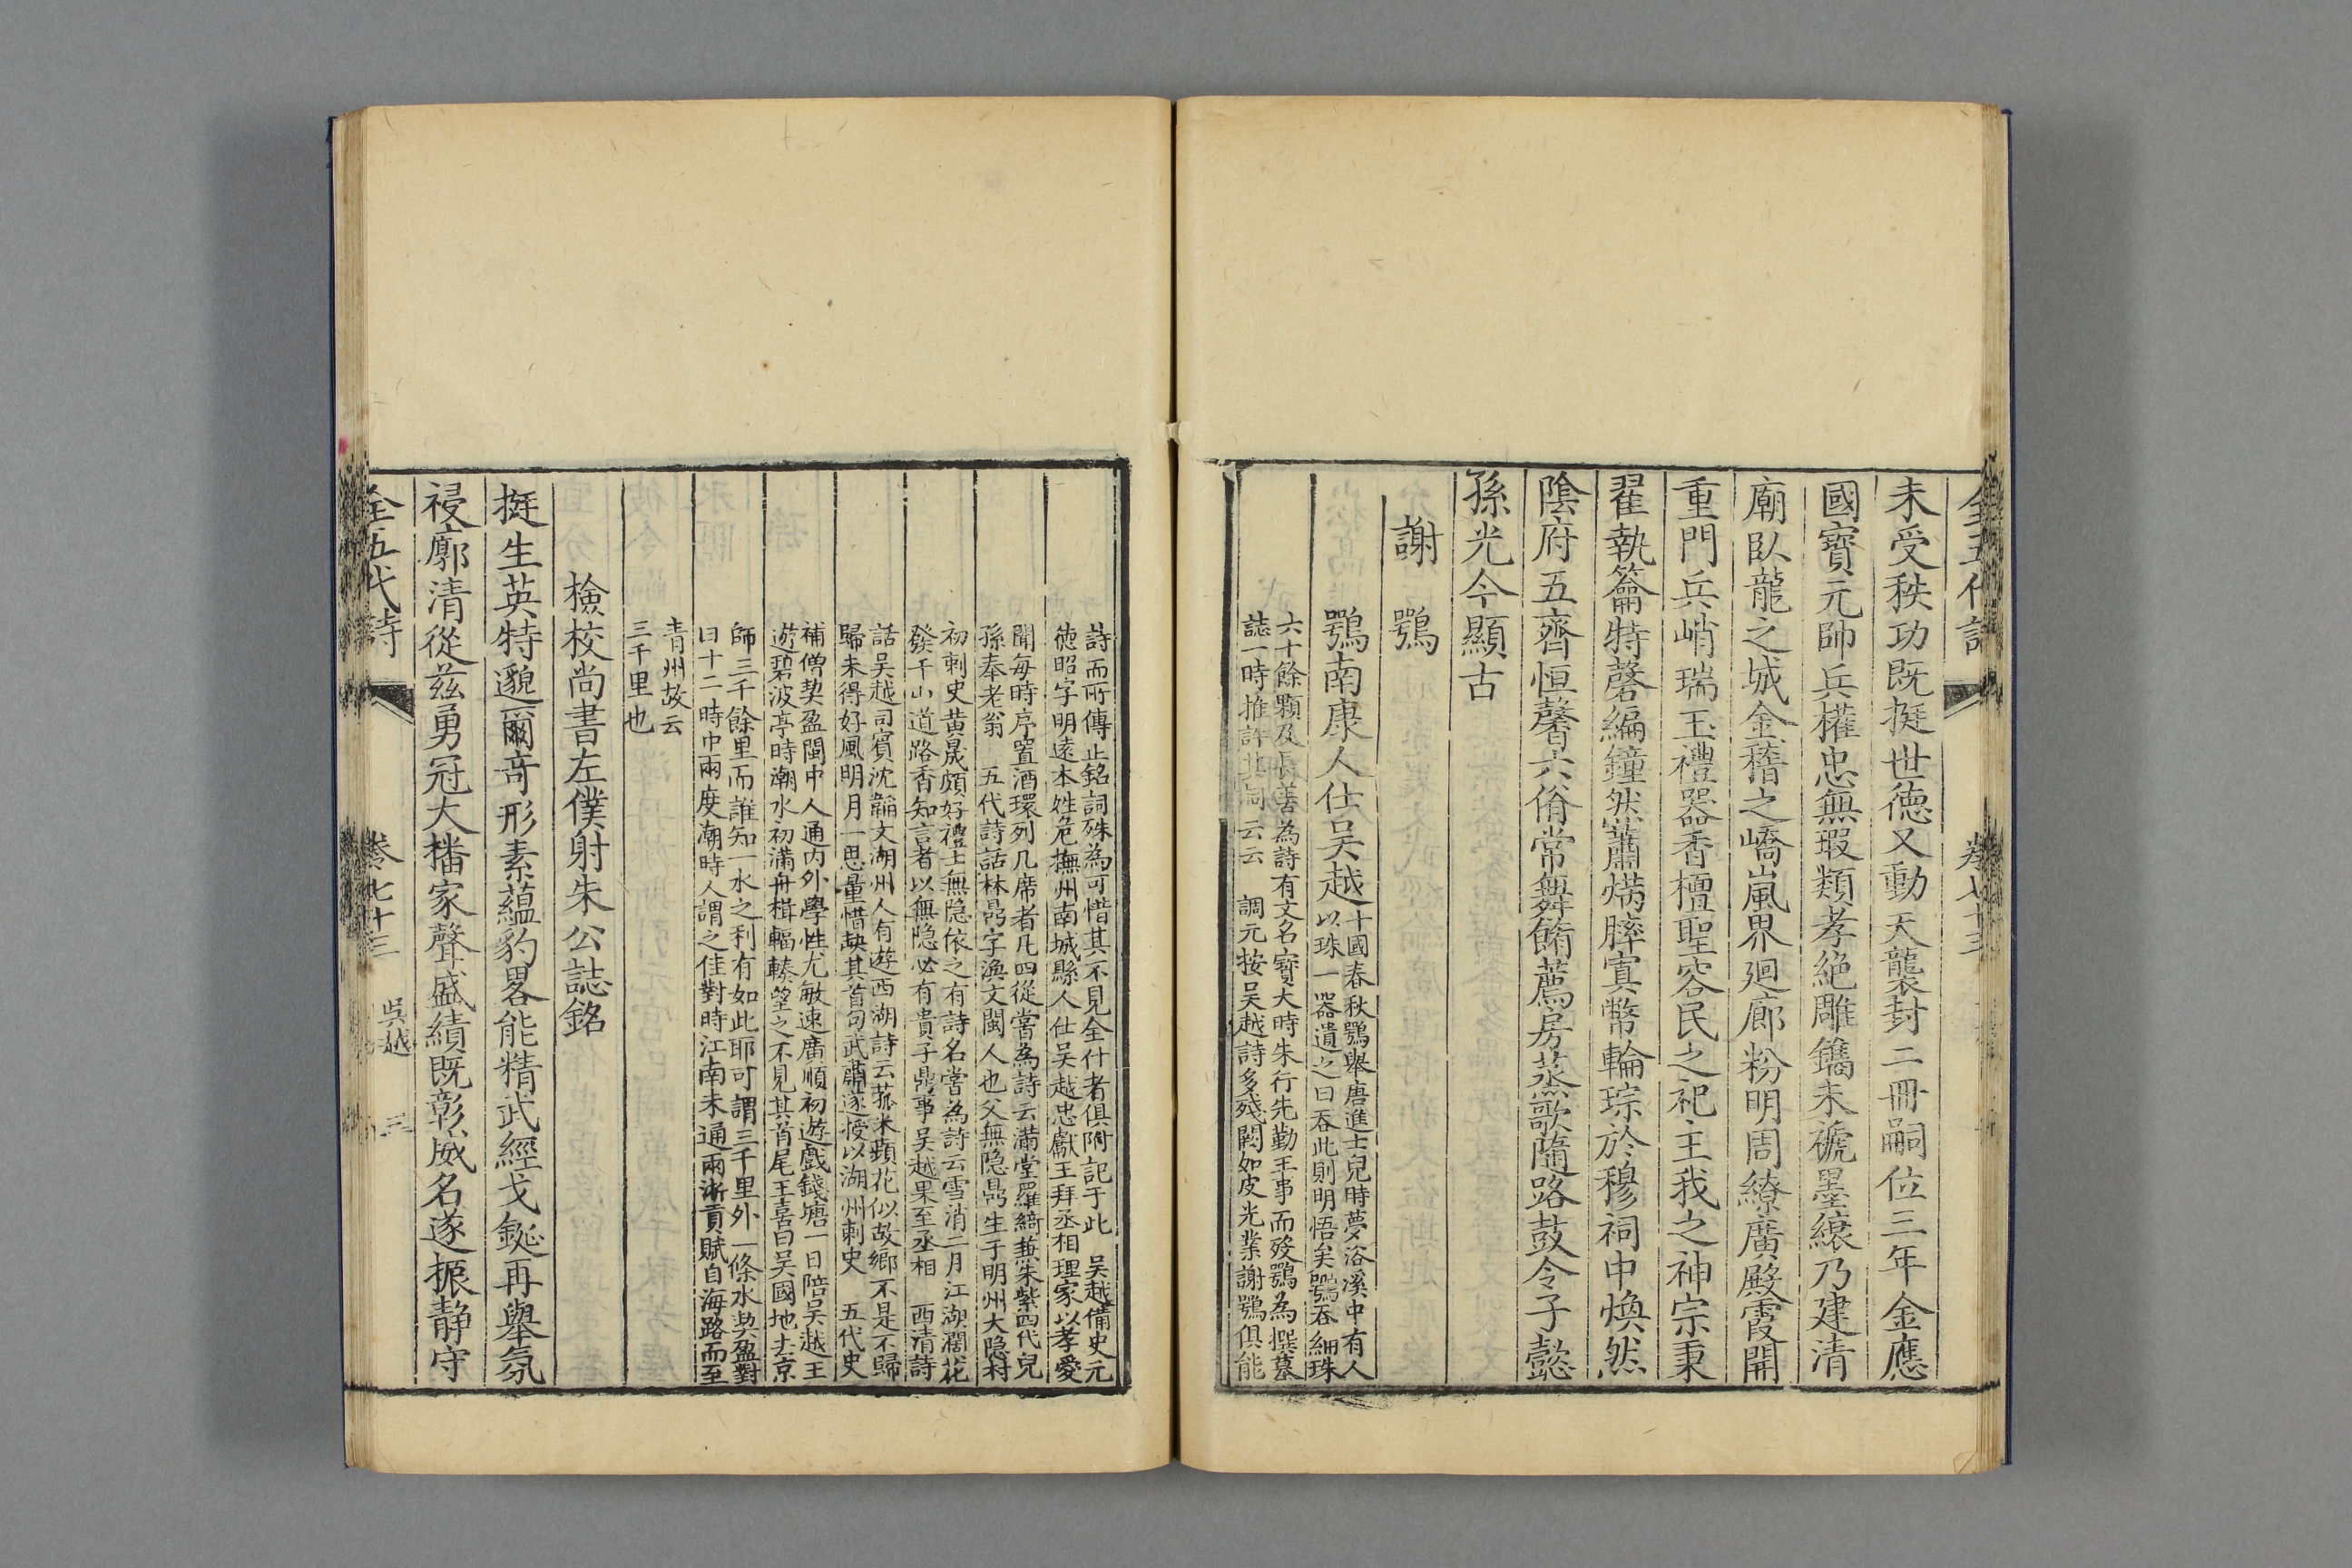 全五代詩
卷七十三
未受秩功既挺世德又動天襲封二冊嗣位三年金應
國寶元帥兵權忠無瑕類孝絶雕鐫未褫墨縗乃建清
廟臥龍之城金稽之嶠嵐界廻廊粉明周繚廣殿霞開
重門兵峭瑞玉禮器香檀聖容民之祀主我之神宗秉
翟執籥特磬編鐘焣蕭焫膟寘幣輪琮於穆祠中煥然
陰府五齊恒馨六佾常舞餚薦房烝歌隨路鼓令子懿
孫光今顯古
謝鶚
鶚南康人仕吳越
十國春秋鶚舉唐進士兒時夢浴溪中有人
以珠一器遺之曰吞此則明悟矣鶚吞細珠
六十餘顆及長善為詩有文名寶大時朱行先勤王事而歿鶚為撰墓
誌一時推許其詞云云 調元按吳越詩多殘闕如皮光業謝鶚俱能
詩而所傳止銘詞殊為可惜其不見全什者俱附記于此 吳越備史元
德昭字明遠本姓危撫州南城縣人仕吳越忠獻王拜丞相理家以孝愛
聞每時序置酒環列几席者凡四從嘗為詩云滿堂羅綺兼朱紫四代兒
孫奉老翁 五代詩話林鼎字渙文閩人也父無隱鼎生于明州大隱村
初刺史黃晟頗好禮士無隱依之有詩名嘗為詩云雪消二月江湖濶花
發千山道路香知言者以無隱必有貴子鼎事吳越果至丞相 西清詩
話吳越司賓沈韜文湖州人有遊西湖詩云菰米蘋花似故鄉不是不歸
歸未得好風明月一思量惜缺其首句武肅遂授以湖州刺史 五代史
補僧契盈閩中人通内外學性尤敏速廣順初遊戲錢塘一日陪吳越王
遊碧波亭時潮水初滿舟楫輻輳望之不見其首尾王喜曰吳國地去京
師三千餘里而誰知一水之利有如此耶可謂三千里外一條水契盈對
曰十二時中兩度潮時人謂之佳對時江南未通兩浙貢賦自海路而至
青州故云
三千里也
檢校尚書左僕射朱公誌銘
挺生英特邈爾竒形素蘊豹畧能精武經戈鋋再舉氛
祲廓清從兹勇冠大播家聲盛績既彰威名遂振静守
全五代詩
卷七十三
吳越
三